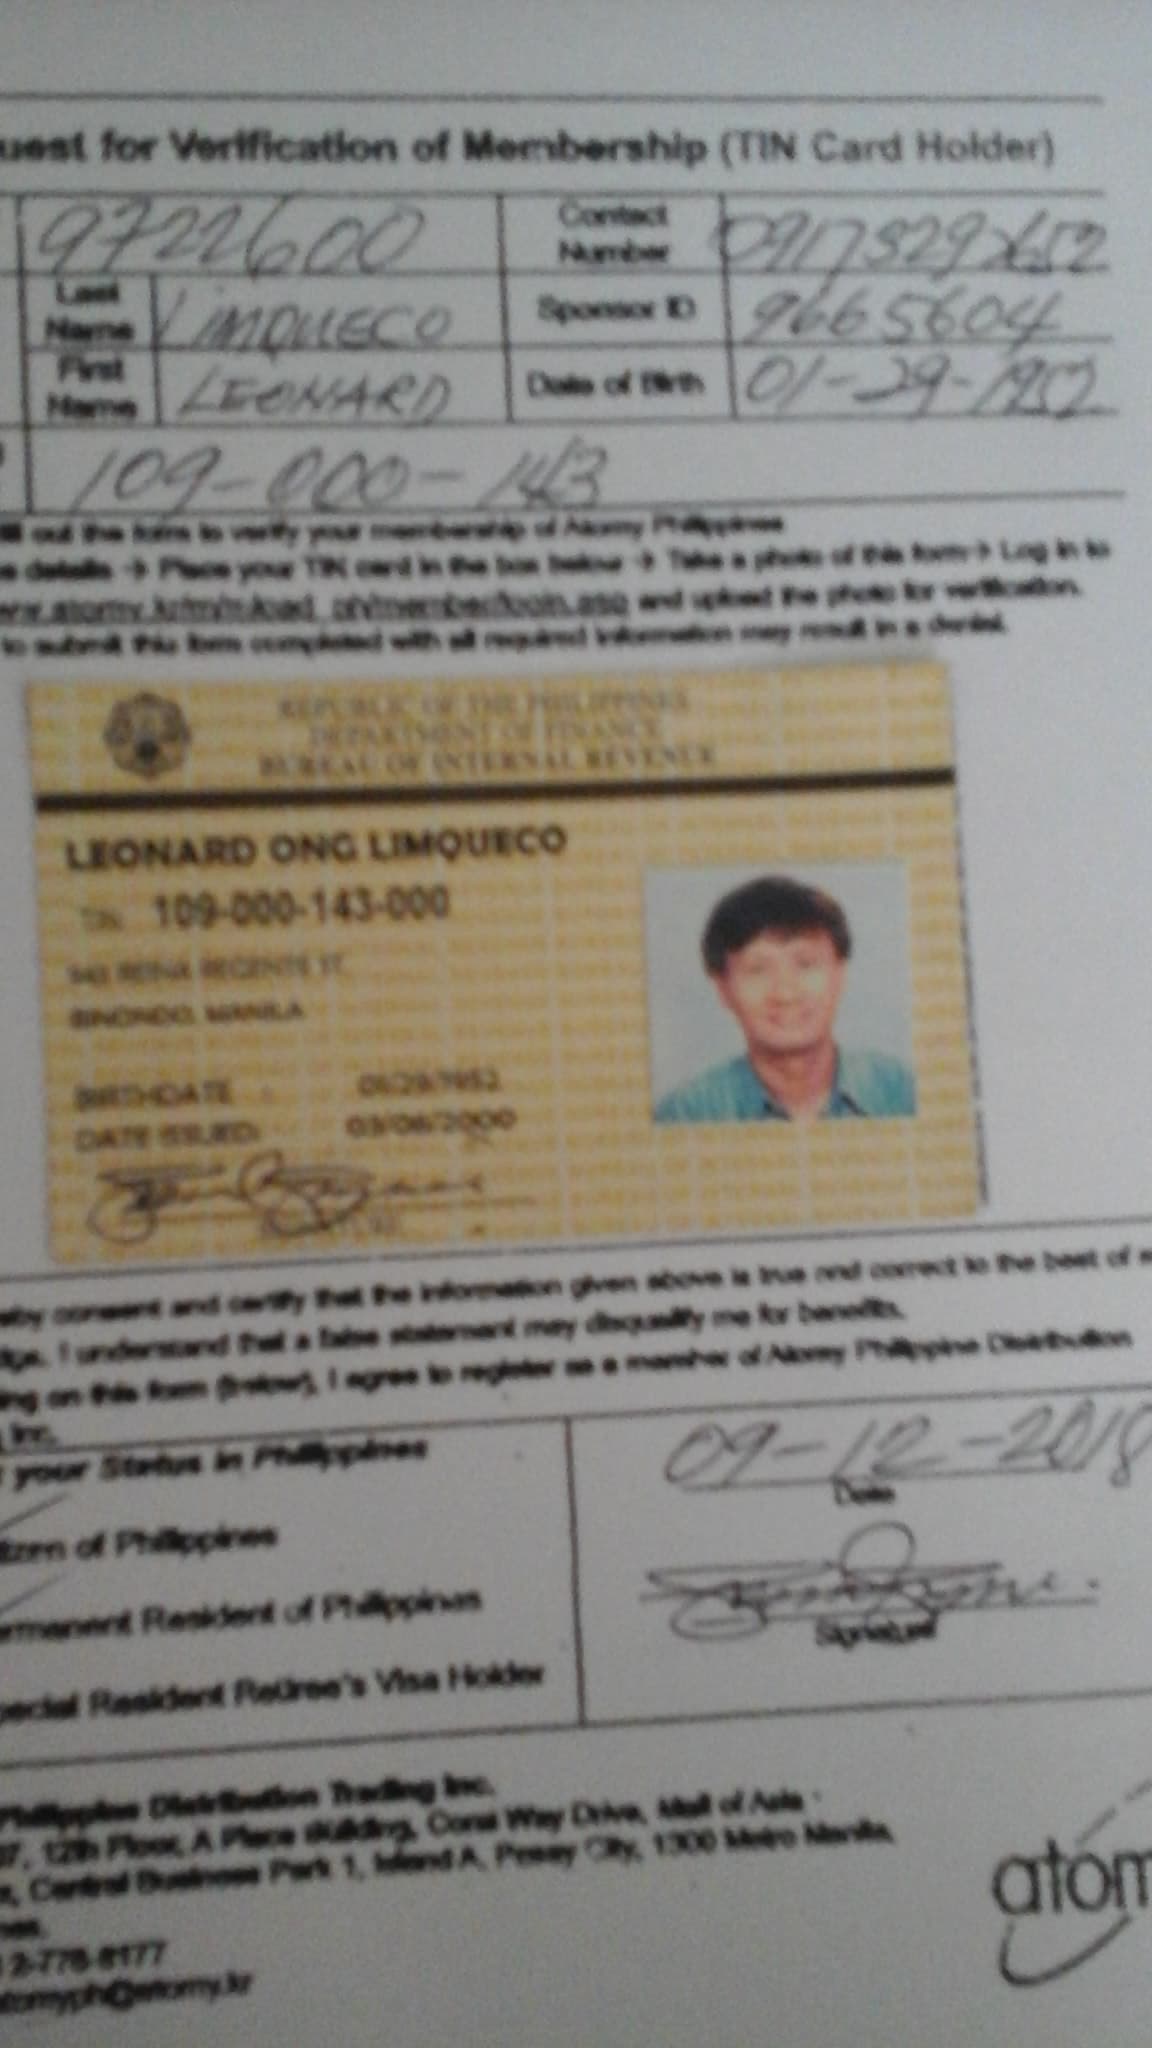 uest for Verification of Membership (TIN Card Holder)
9722600
Contact Number
Last Name
LIMQUECO
Sponsor ID
9665604
First Name
LEONARD
Date of Birth
01-29-1952
109-000-143
ill out the form to verify your membership of Atomy Philippines
details → Place your TIN card in the box below → Take a photo of this form → Log in to
and upload the photo for verification.
to submit this form completed with all required information may result in a denial.
REPUBLIC OF THE PHILIPPINES
DEPARTMENT OF FINANCE
BUREAU OF INTERNAL REVENUE
LEONARD ONG LIMQUECO
TIN 109-000-143-000
943 REINA REGENTE ST.
BINONDO, MANILA
BIRTHDATE : 01/29/1952
DATE ISSUED: 03/08/2000
eby consent and certify that the information given above is true and correct to the best of
dge. I understand that a false statement may disqualify me for benefits.
ing on this form (below), I agree to register as a member of Atomy Philippine Distribution
Inc.
your Status in Philippines
09-12-2018
Date
tizen of Philippines
ermanent Resident of Philippines
Signature
pecial Resident Retiree's Visa Holder
Philippine Distribution Trading Inc.
12th Floor, A Place Building, Coral Way Drive, Mall of Asia
Central Business Park 1, Island A, Pasay City, 1300 Metro Manila,
nes.
2-778-8177
atomyph@atomy.kr
atom